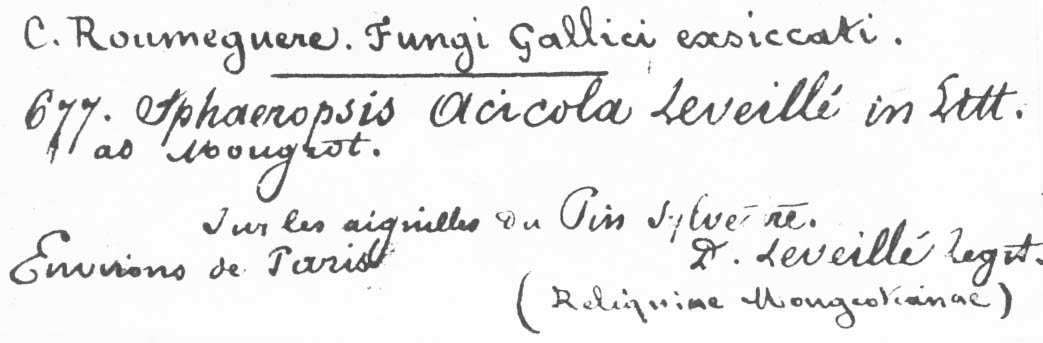 C. Roumeguere. Fungi Gallici exsiccati.
677. Sphaeropsis Acicola Leveillé in Litt.
ad Mougeot.
Sur les aiguilles du Pin Sylvestre.
Environs de Paris
D. Leveillé legit.
(Reliquiae Mougeotianae)